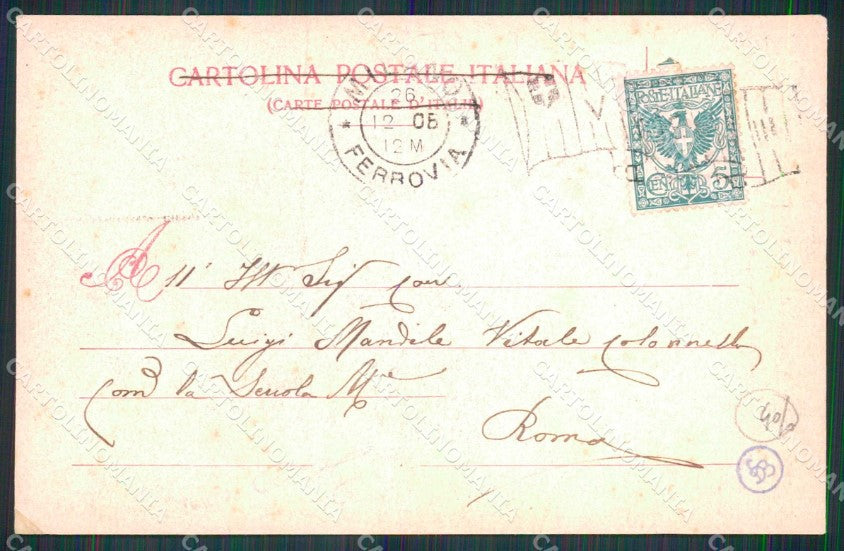 CARTOLINA POSTALE ITALIANA
(CARTE POSTALE D'ITALIE)
MILANO
26
12 05
12 M
* FERROVIA *
POSTE ITALIANE
CENT 5
All' Ill Sig cav
Luigi Mandile Vitale colonnello
com la Scuola Mre
Roma
CARTOLINOMANIA